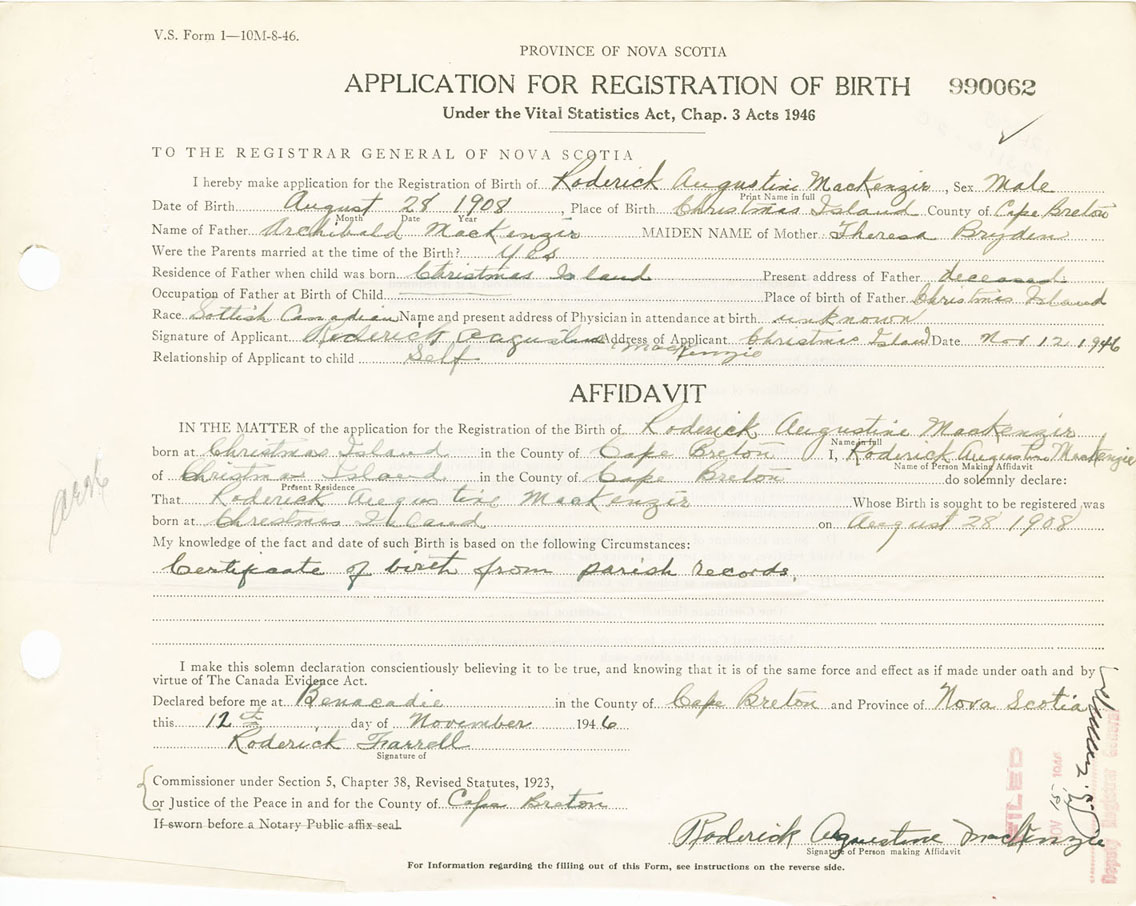 V.S. Form 1—10M-8-46.
PROVINCE OF NOVA SCOTIA
APPLICATION FOR REGISTRATION OF BIRTH 990062
Under the Vital Statistics Act, Chap. 3 Acts 1946
TO THE REGISTRAR GENERAL OF NOVA SCOTIA
I hereby make application for the Registration of Birth of Roderick Augustine MacKenzie, Sex Male
Print Name in full
Date of Birth August 28 1908, Place of Birth Christmas Island County of Cape Breton
Month Date Year
Name of Father Archibald MacKenzie MAIDEN NAME of Mother Theresa Bryden
Were the Parents married at the time of the Birth? Yes
Residence of Father when child was born Christmas Island Present address of Father deceased
Occupation of Father at Birth of Child Place of birth of Father Christmas Island
Race Scottish Canadian Name and present address of Physician in attendance at birth unknown
Signature of Applicant Roderick Augustine MacKenzie Address of Applicant Christmas Island Date Nov 12 1946
Relationship of Applicant to child Self
AFFIDAVIT
IN THE MATTER of the application for the Registration of the Birth of Roderick Augustine MacKenzie
Name in full
born at Christmas Island in the County of Cape Breton I, Roderick Augustine MacKenzie
Name of Person Making Affidavit
of Christmas Island in the County of Cape Breton do solemnly declare:
Present Residence
That Roderick Augustine MacKenzie Whose Birth is sought to be registered was
born at Christmas Island on August 28 1908
My knowledge of the fact and date of such Birth is based on the following Circumstances:
Certificate of birth from parish records.
I make this solemn declaration conscientiously believing it to be true, and knowing that it is of the same force and effect as if made under oath and by
virtue of The Canada Evidence Act.
Declared before me at Benacadie in the County of Cape Breton and Province of Nova Scotia
this 12th day of November 1946
Roderick Farrell
Signature of
Commissioner under Section 5, Chapter 38, Revised Statutes, 1923,
or Justice of the Peace in and for the County of Cape Breton
If sworn before a Notary Public affix seal.
Roderick Augustine MacKenzie
Signature of Person making Affidavit
For Information regarding the filling out of this Form, see instructions on the reverse side.
FILED
NOV 1946
Deputy Registrar General